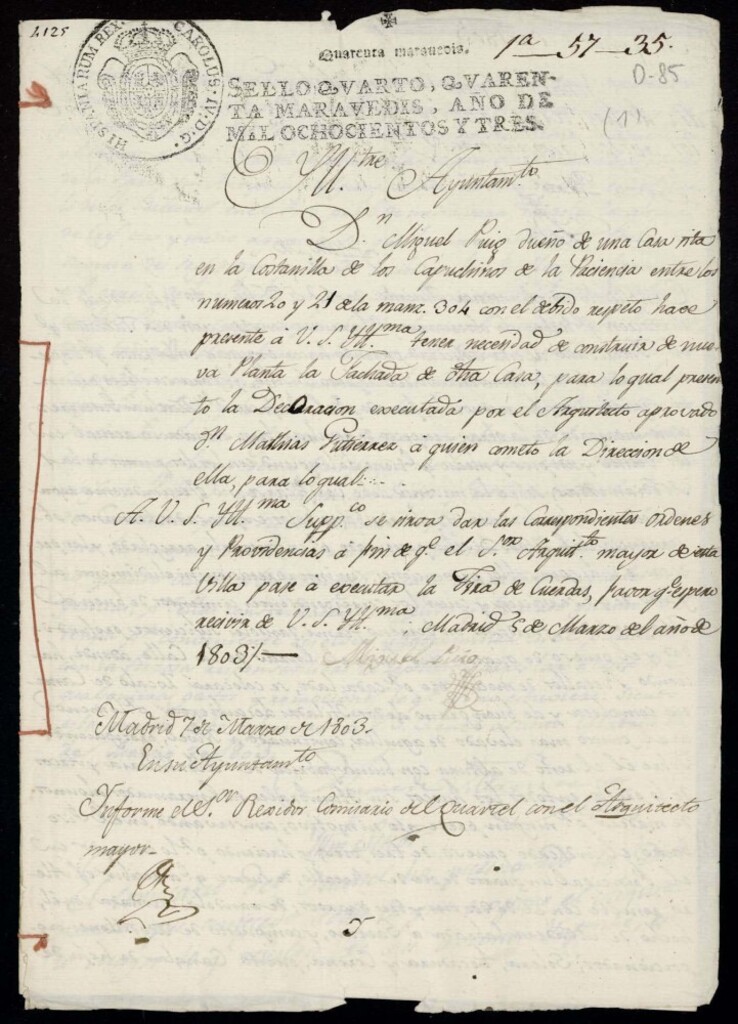 4125
HISPANIARUM REX. CAROLUS. IV. D. G.
Quarenta marauedis.
1a 57-35.
D-85
(1)
SELLO QVARTO, QVAREN-
TA MARAVEDIS, AÑO DE
MIL OCHOCIENTOS Y TRES.
Yll.tre Ayuntam.to
D.n Miguel Puig dueño de una Casa sita
en la Costanilla de los Capuchinos de la Paciencia entre los
numeros 20 y 21 de la manz. 304 con el debido respeto hace
presente à V. S. Yll.ma tener necesidad de construir de nue
va Planta la Fachada de dha Casa, para lo qual presen
to la Declaracion executada por el Arquitecto aprovado
D.n Mathias Gutierrez à quien cometo la Direccion de
ella, para lo qual:
A. V. S. Yll.ma Supp.co se sirva dar las Correspondientes ordenes
y Providencias à fin de q.e el S.or Arquit.to mayor de esta
Villa pase à executar la Tira de Cuerdas, favor q.e espero
recivir de V. S. Yll.ma; Madrid 5 de Marzo del año de
1803/.—
Miguel Puig
Madrid 7 de Marzo de 1803.
En su Ayuntam.to
Informe el S.or Rexidor Comisario del Quartel con el Arquitecto
mayor-